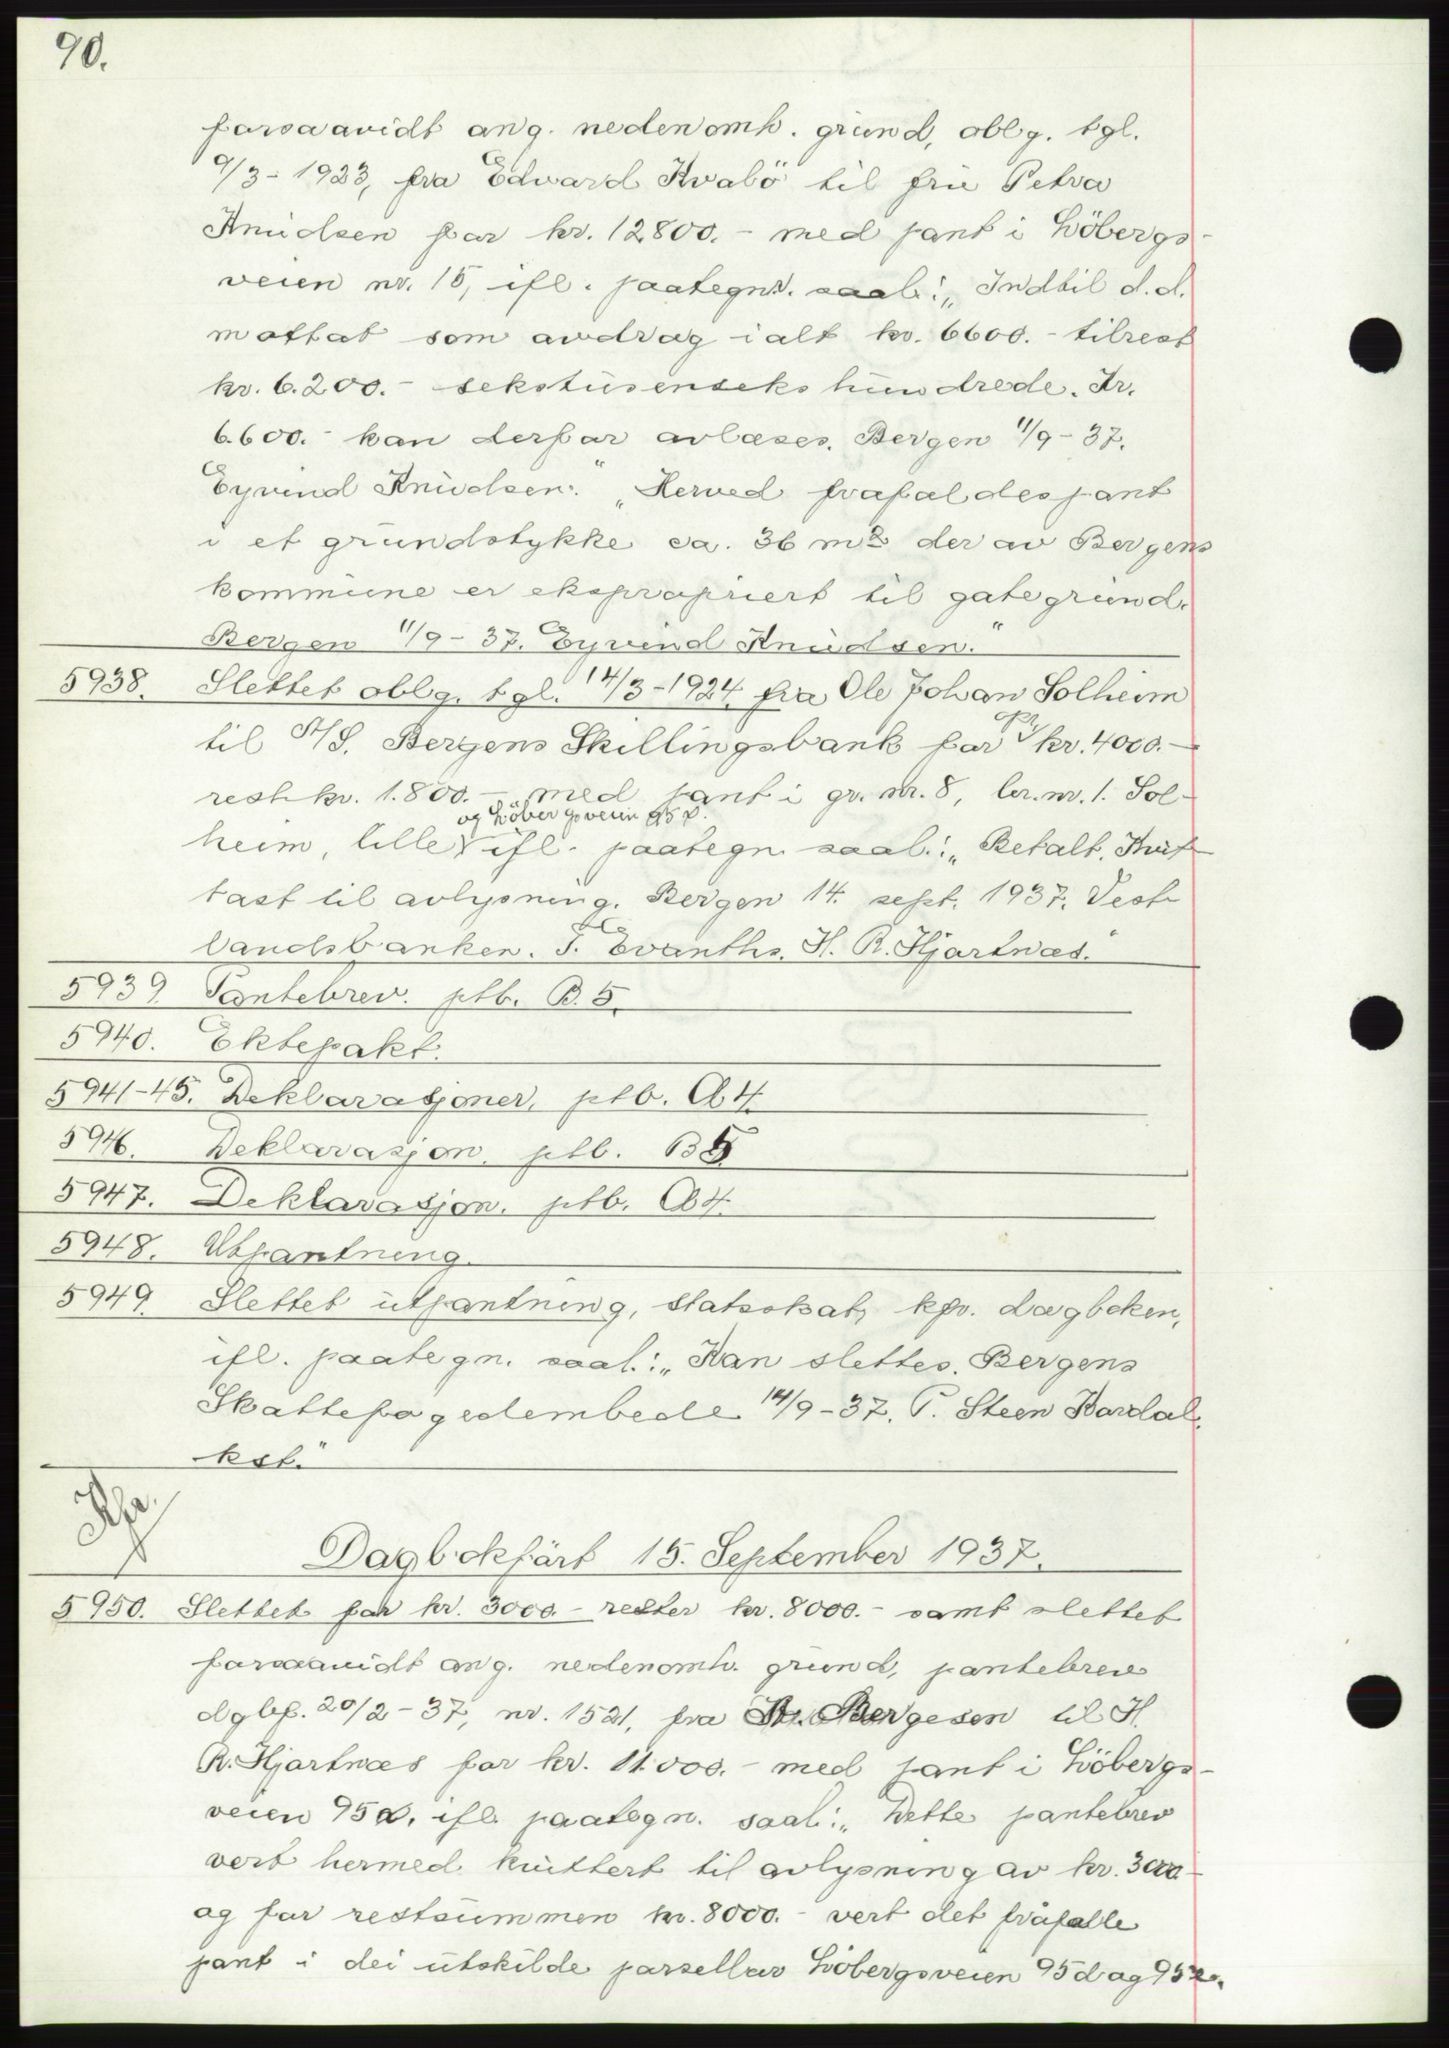 90.
forsaavidt ang. nedenomh. grund, oblg. tgl.
9/3-1923, fra Edvard Kvalö til fru Petra
Knudsen for kr. 12800.- med pant i Löbergs-
veien nr. 15, ifl. paategn. saal.: „Indtil d.d.
mottat som avdrag ialt kr. 6600.- tilrest
kr. 6.200.- sekstusenseks hundrede. Kr.
6.600.- kan derfor avlæses. Bergen 11/9-37.
Eyvind Knudsen." „Herved frafaldes pant
i et grundstykke ca. 36 m2 der av Bergens
kommune er ekspropriert til gategrund.
Bergen 11/9-37. Eyvind Knudsen."
5938. Slettet oblg. tgl. 14/3-1924, fra Ole Johan Solheim
til A/S. Bergens Skillingsbank for opr. kr. 4000.-
rest kr. 1.800.- med pant i gr. nr. 8, br. nr. 1. Sol-
og Löbergsveien 95 d.
heim, lille ifl. paategn. saal.: „Betalt. Kvit-
tast til avlysning. Bergen 14. sept. 1937. Vest-
landsbanken. T. Evanths. H. R. Hjartnæs."
5939. Pantebrev. ptb. B. 5.
5940. Ektepakt.
5941-45. Deklarasjoner, ptb. A 4.
5946. Deklarasjon. ptb. B 5.
5947. Deklarasjon. ptb. A 4.
5948. Utpantning.
5949. Slettet utpantning, statsskat, kfr. dagboken,
ifl. paategn. saal.: „Kan slettes. Bergens
Skattefogedembede 14/9-37. P. Steen Bardal.
kst."
Dagbokfört 15. September 1937.
5950. Slettet for kr. 3000.- rester kr. 8000.- samt slettet
forsaavidt ang. nedenomh. grund, pantebrev
dgbf. 20/2-37, nr. 1521, fra Bergesen til H.
R. Hjartnæs for kr. 11.000.- med pant i Löbergs-
veien 95 a, ifl. paategn. saal.: „Dette pantebrev
vert hermed kvittert til avlysning av kr. 3000.-
og for restsummen kr. 8000.- vert det fråfalle
pant i dei utskilde parseller Löbergsveien 95 d og 95 e.